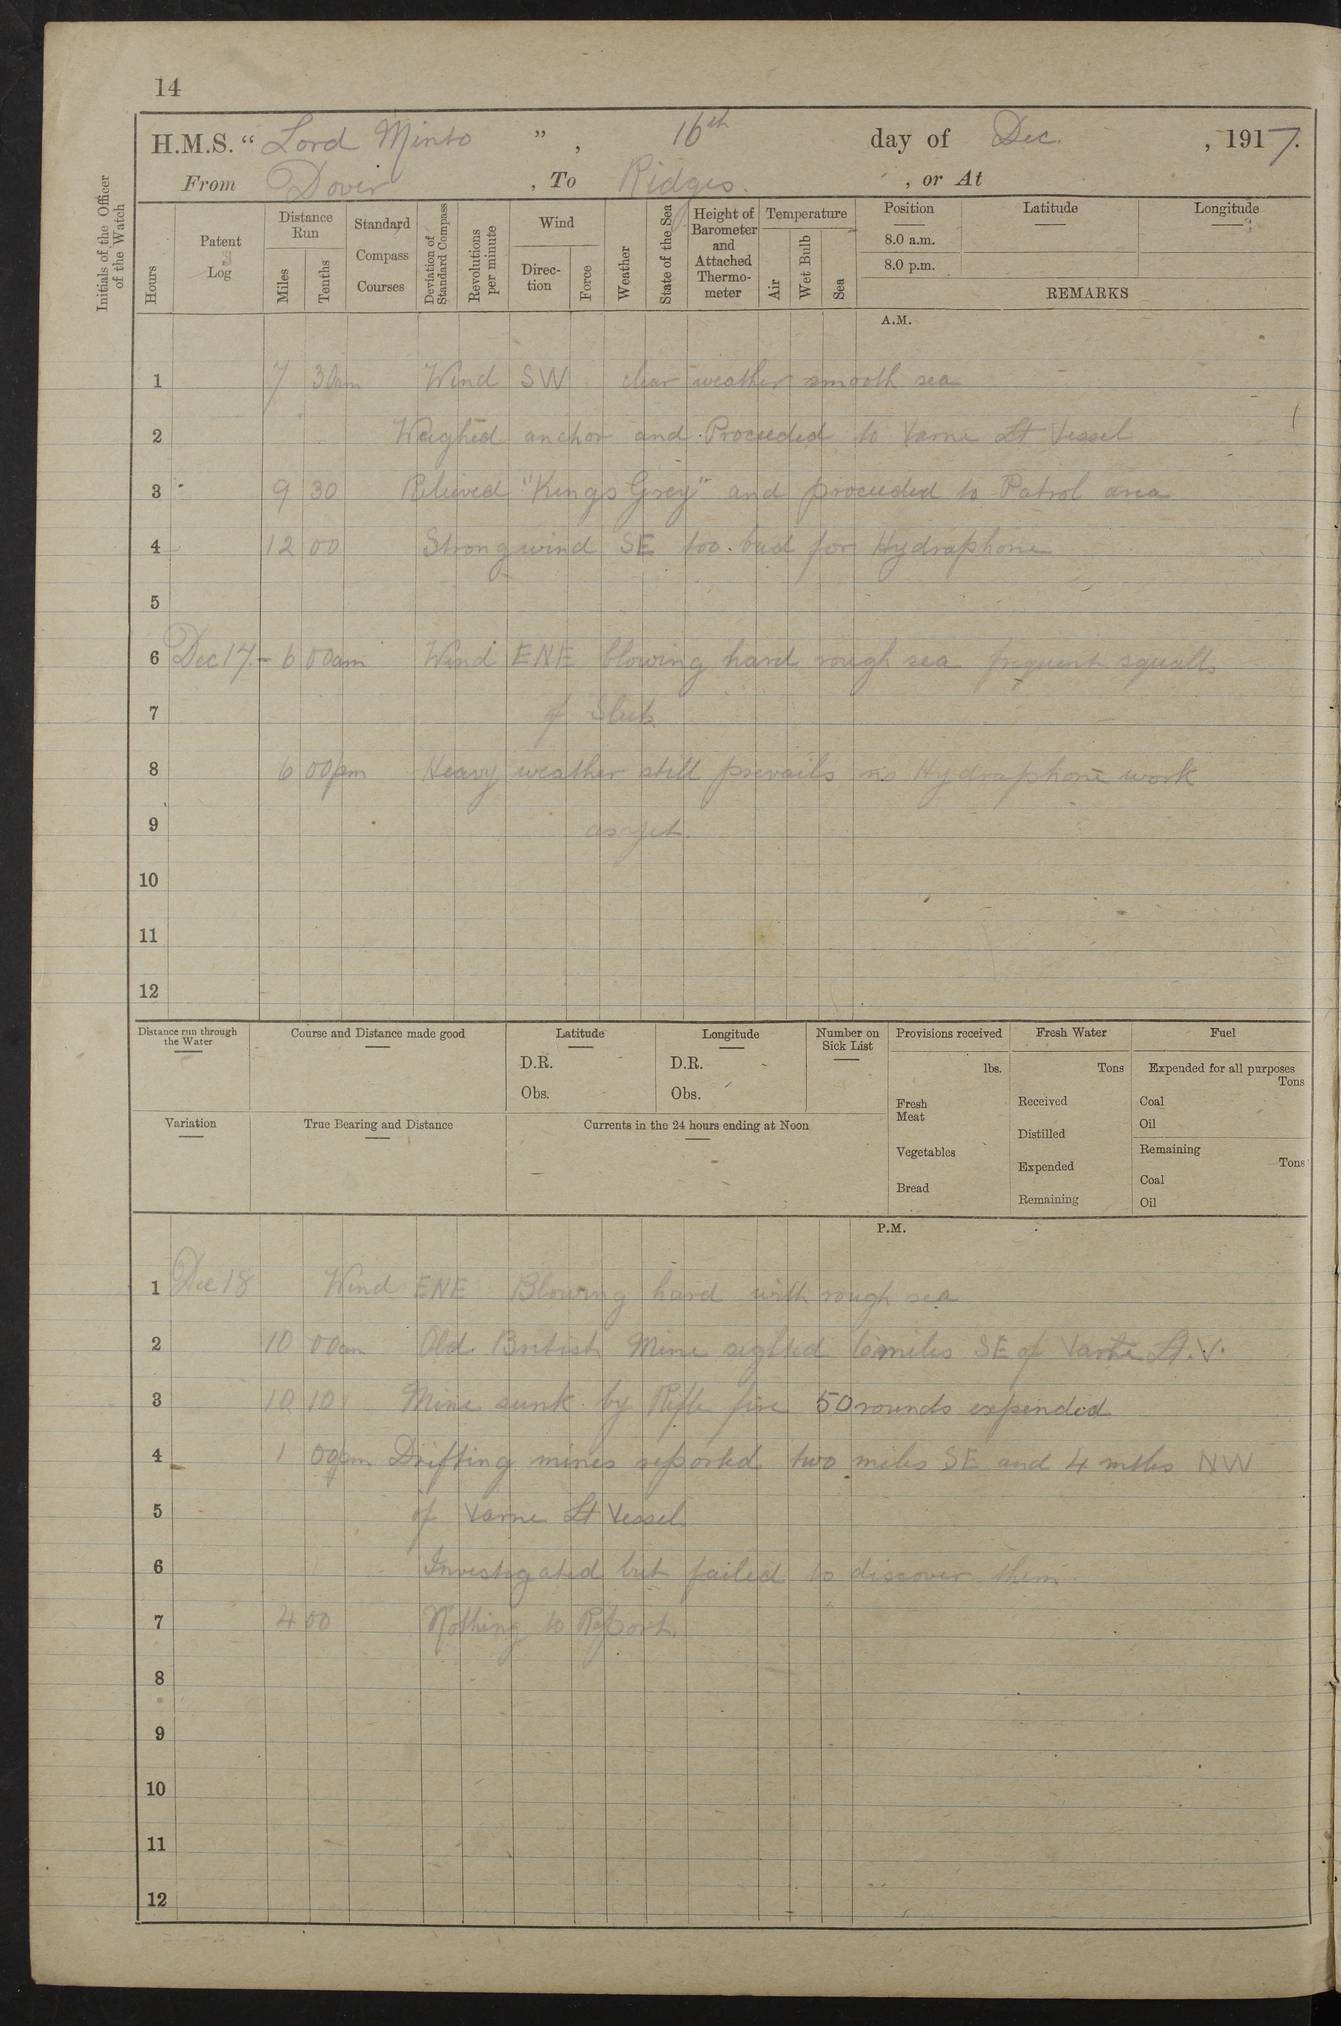 14
H.M.S. “ Lord Minto ” , 16th day of Dec. , 1917.
From Dover , To Ridges. , or At
Initials of the Officer of the Watch
Hours
Patent Log
Distance Run
Miles
Tenths
Standard Compass Courses
Deviation of Standard Compass
Revolutions per minute
Wind
Direc-tion
Force
Weather
State of the Sea
Height of Barometer and Attached Thermo-meter
Temperature
Air
Wet Bulb
Sea
Position
8.0 a.m.
8.0 p.m.
Latitude
Longitude
REMARKS
A.M.
1 7 30am Wind SW clear weather smooth sea
2 Weighed anchor and Proceeded to Varne Lt Vessel
3 9 30 Relieved "Kings Grey" and proceeded to Patrol area
4 12 00 Strong wind SE too bad for Hydraphone
5
6 Dec 17.- 6 00am Wind ENE blowing hard rough sea frequent squalls
7 of Sleet
8 6 00pm Heavy weather still prevails no Hydraphone work
9 as yet.
10
11
12
Distance run through the Water
Course and Distance made good
Latitude
D.R.
Obs.
Longitude
D.R.
Obs.
Number on Sick List
Provisions received
lbs.
Fresh Meat
Vegetables
Bread
Fresh Water
Tons
Received
Distilled
Expended
Remaining
Fuel
Expended for all purposes
Tons
Coal
Oil
Remaining
Tons
Coal
Oil
Variation
True Bearing and Distance
Currents in the 24 hours ending at Noon
P.M.
1 Dec 18 Wind ENE Blowing hard with rough sea
2 10 00am Old British Mine sighted 6 miles SE of Varne Lt. V.
3 10 10 Mine sunk by Rifle fire 50 rounds expended
4 1 00pm Drifting mines reported two miles SE and 4 miles NW
5 of Varne Lt Vessel
6 Investigated but failed to discover them
7 4 00 Nothing to Report.
8
9
10
11
12